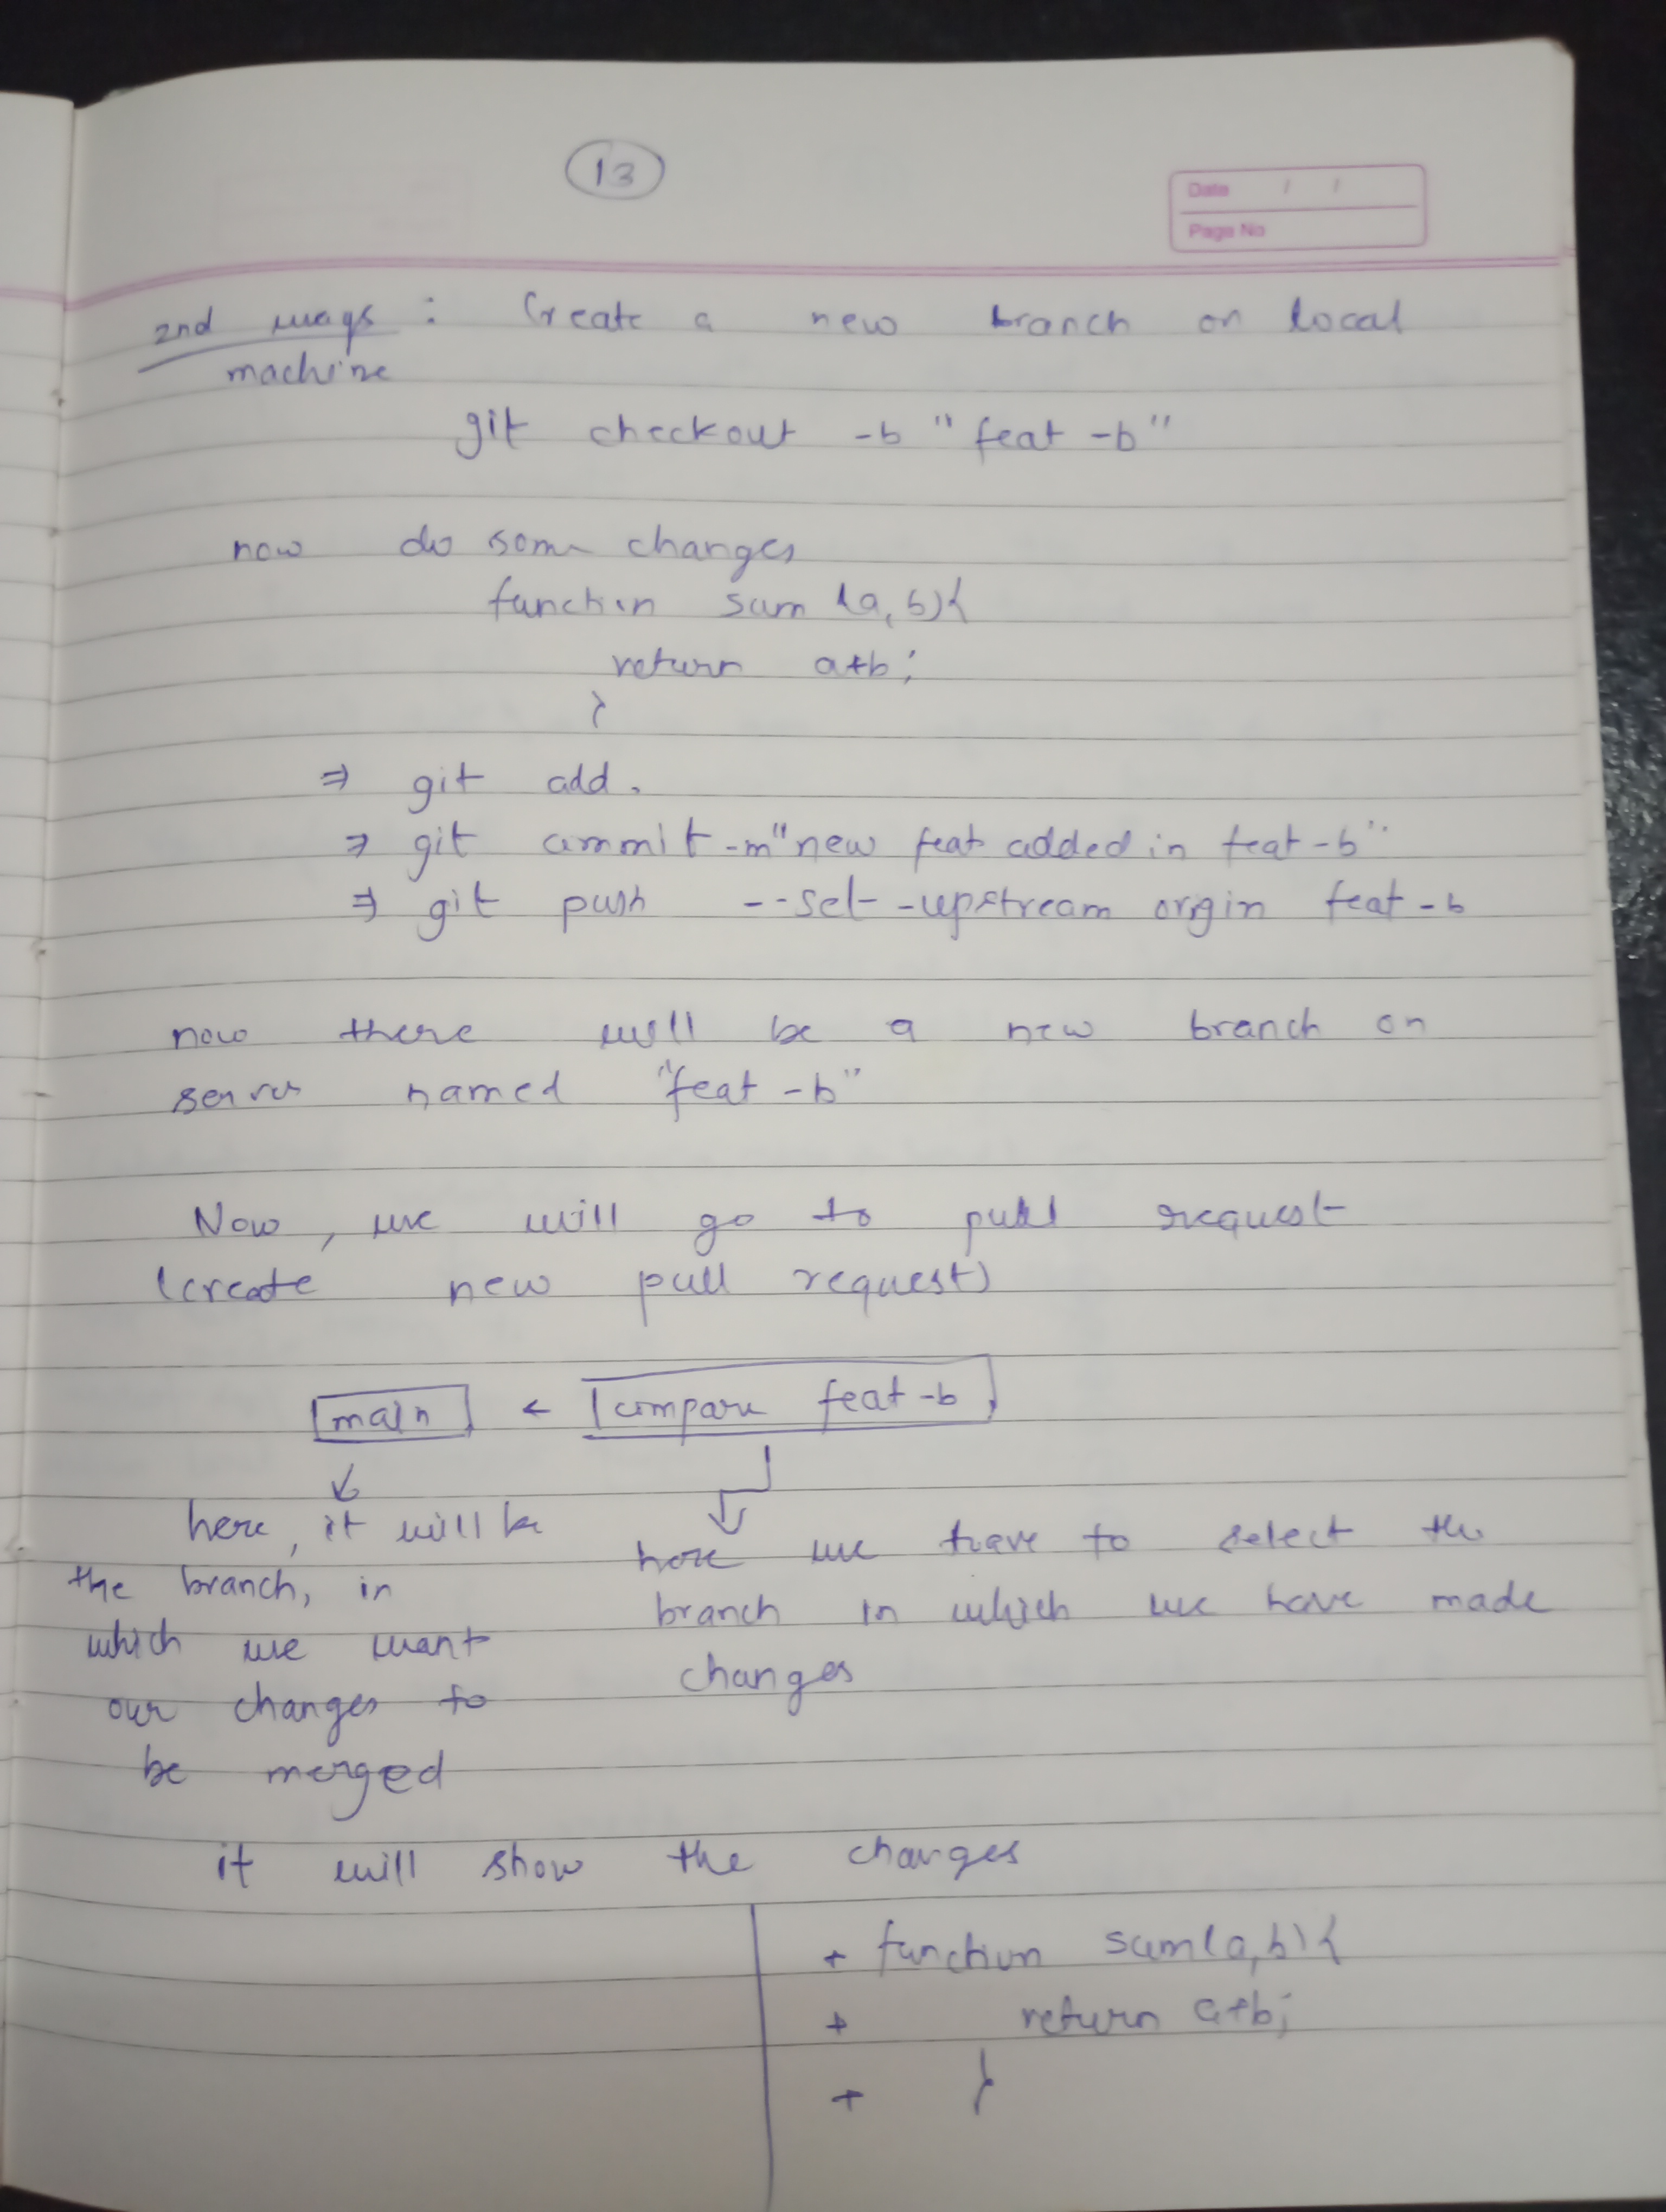 13
Date / /
Page No
2nd ways : Create a new branch on local
machine
git checkout -b "feat -b"
now do some changes
function sum (a, b){
return a+b;
}
⇒ git add .
⇒ git commit -m "new feat added in feat -b"
⇒ git push --set-upstream origin feat -b
now there will be a new branch on
server named "feat -b"
Now, we will go to pull request
(create new pull request)
main ← compare feat -b
here, it will be
the branch, in
which we want
our changes to
be merged
here we have to select the
branch in which we have made
changes
it will show the changes
+ function sum(a,b){
+ return a+b;
+ }